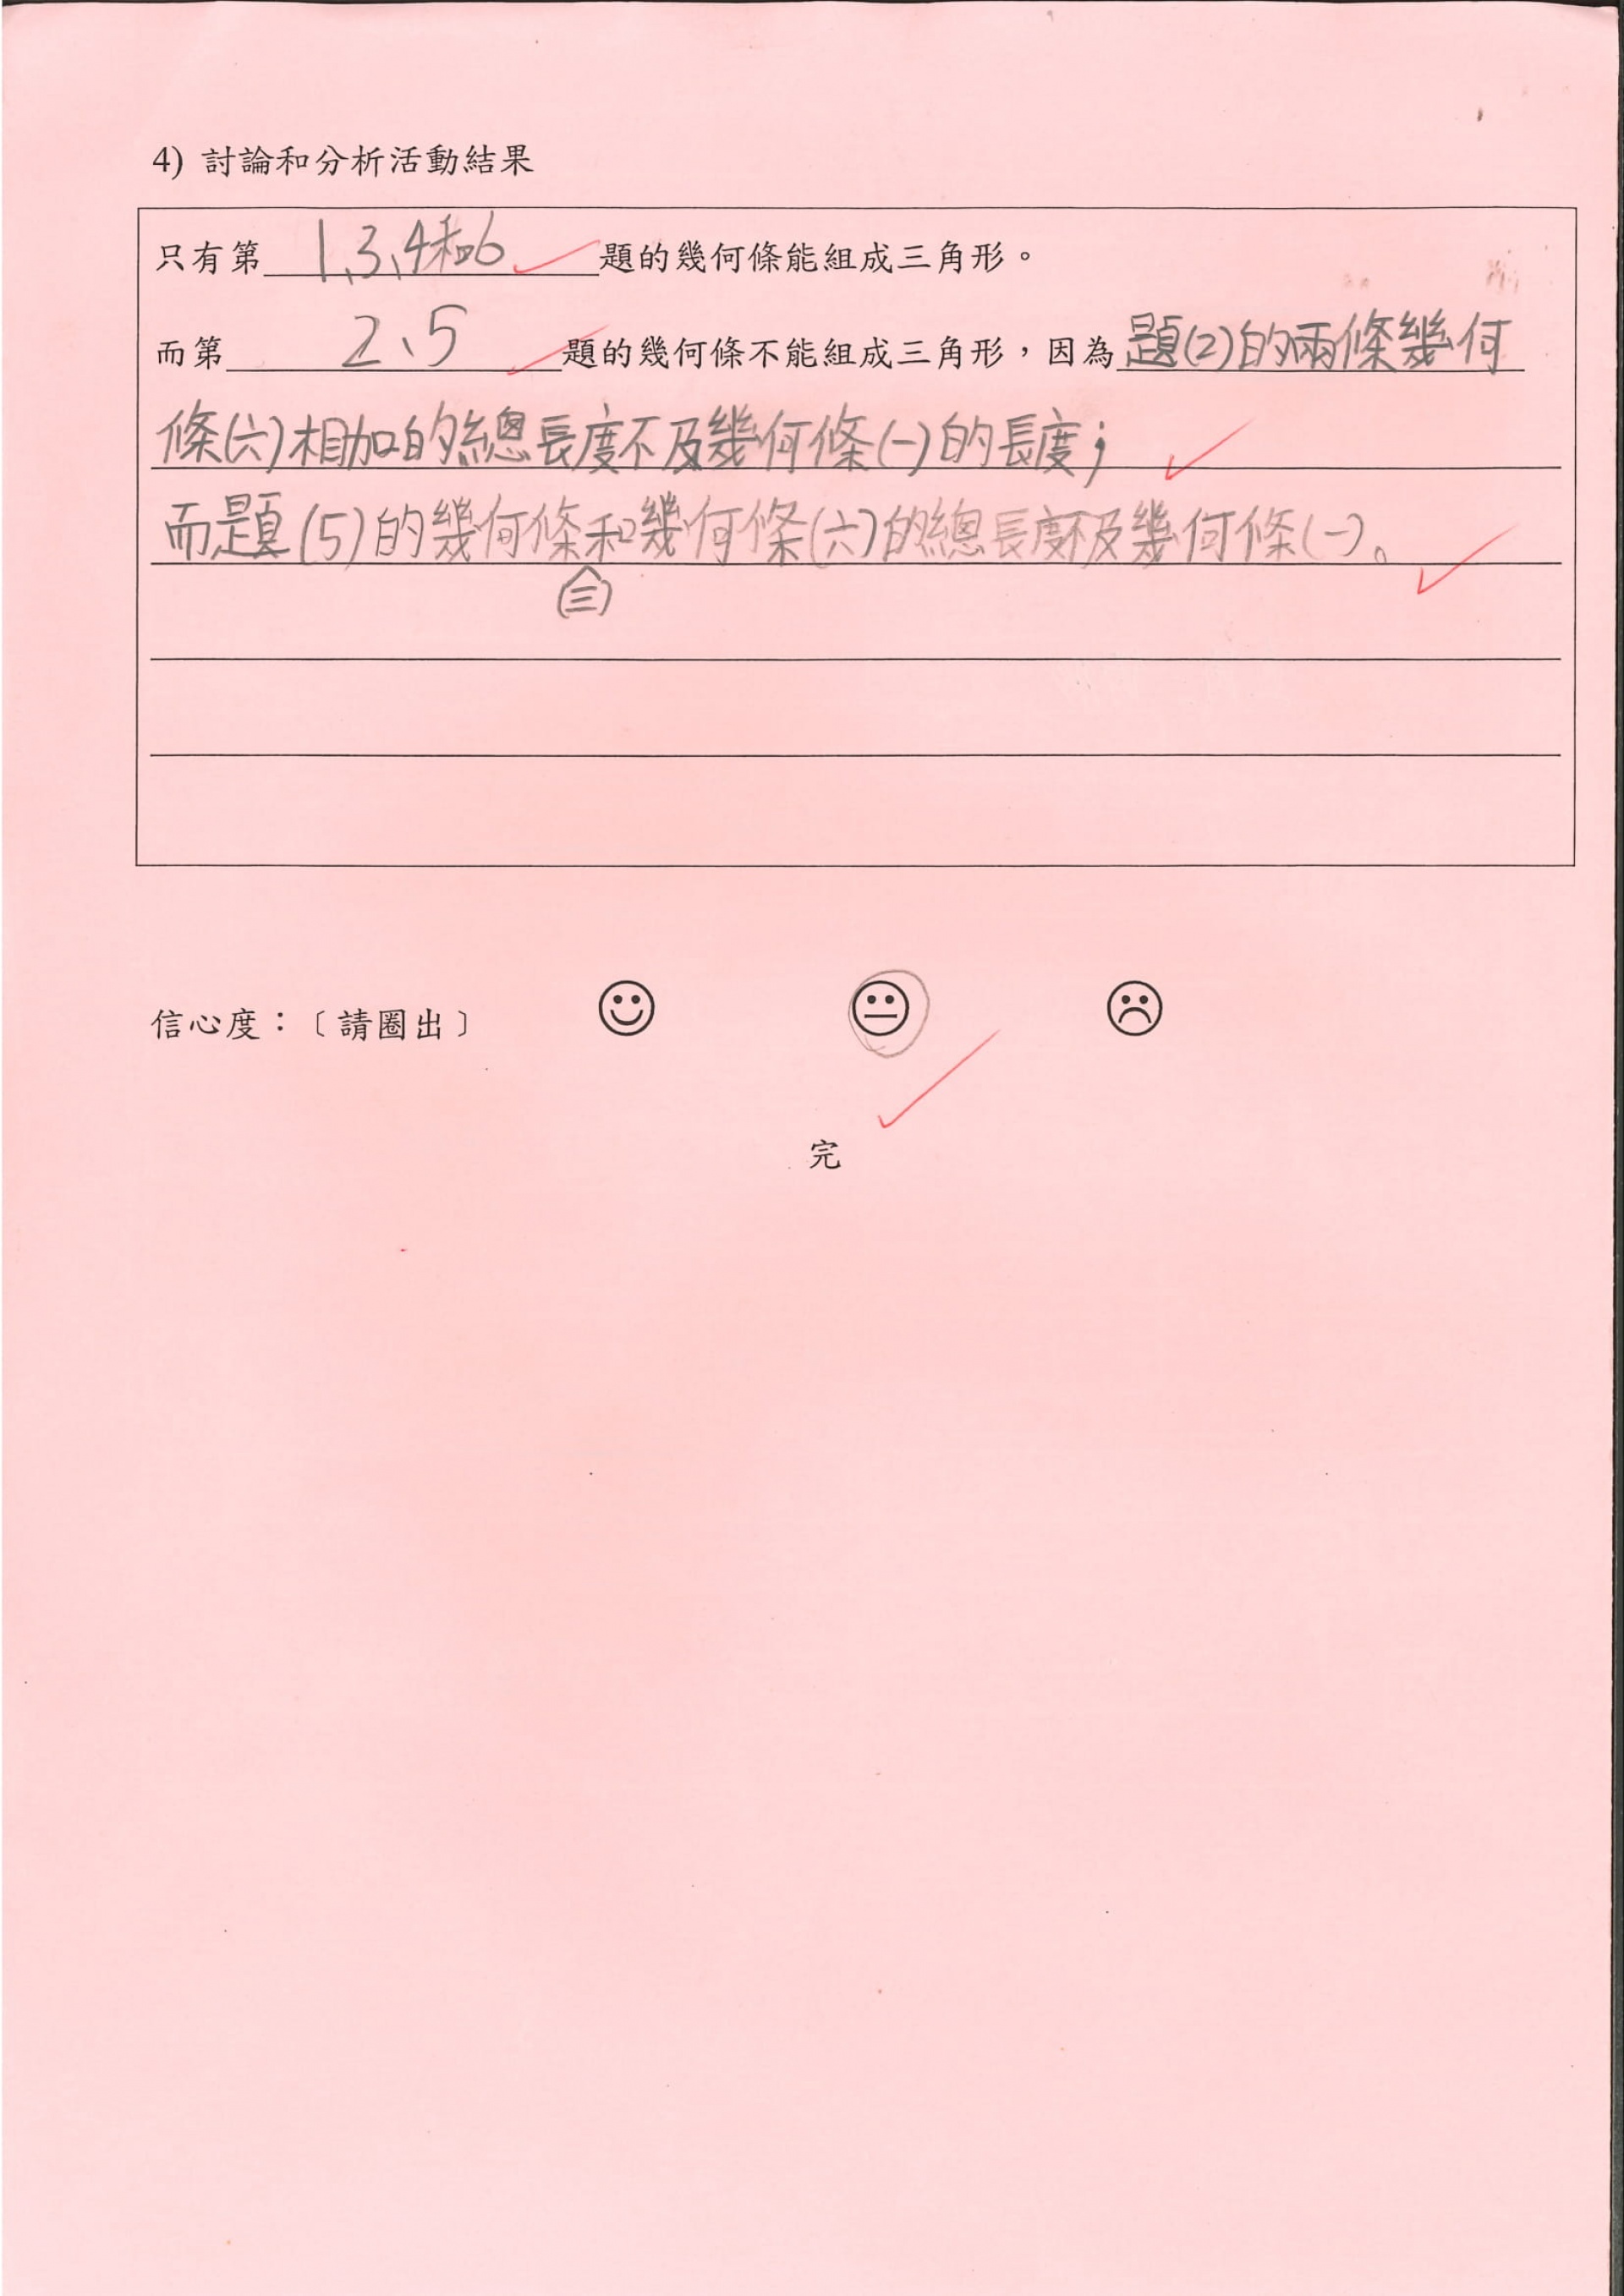 4) 討論和分析活動結果
只有第 1、3、4和6 題的幾何條能組成三角形。
而第 2、5 題的幾何條不能組成三角形，因為題(2)的兩條幾何
條(六)相加的總長度不及幾何條(一)的長度；
而題(5)的幾何條和幾何條(六)的總長度不及幾何條(一)。
(三)
信心度：〔請圈出〕
完